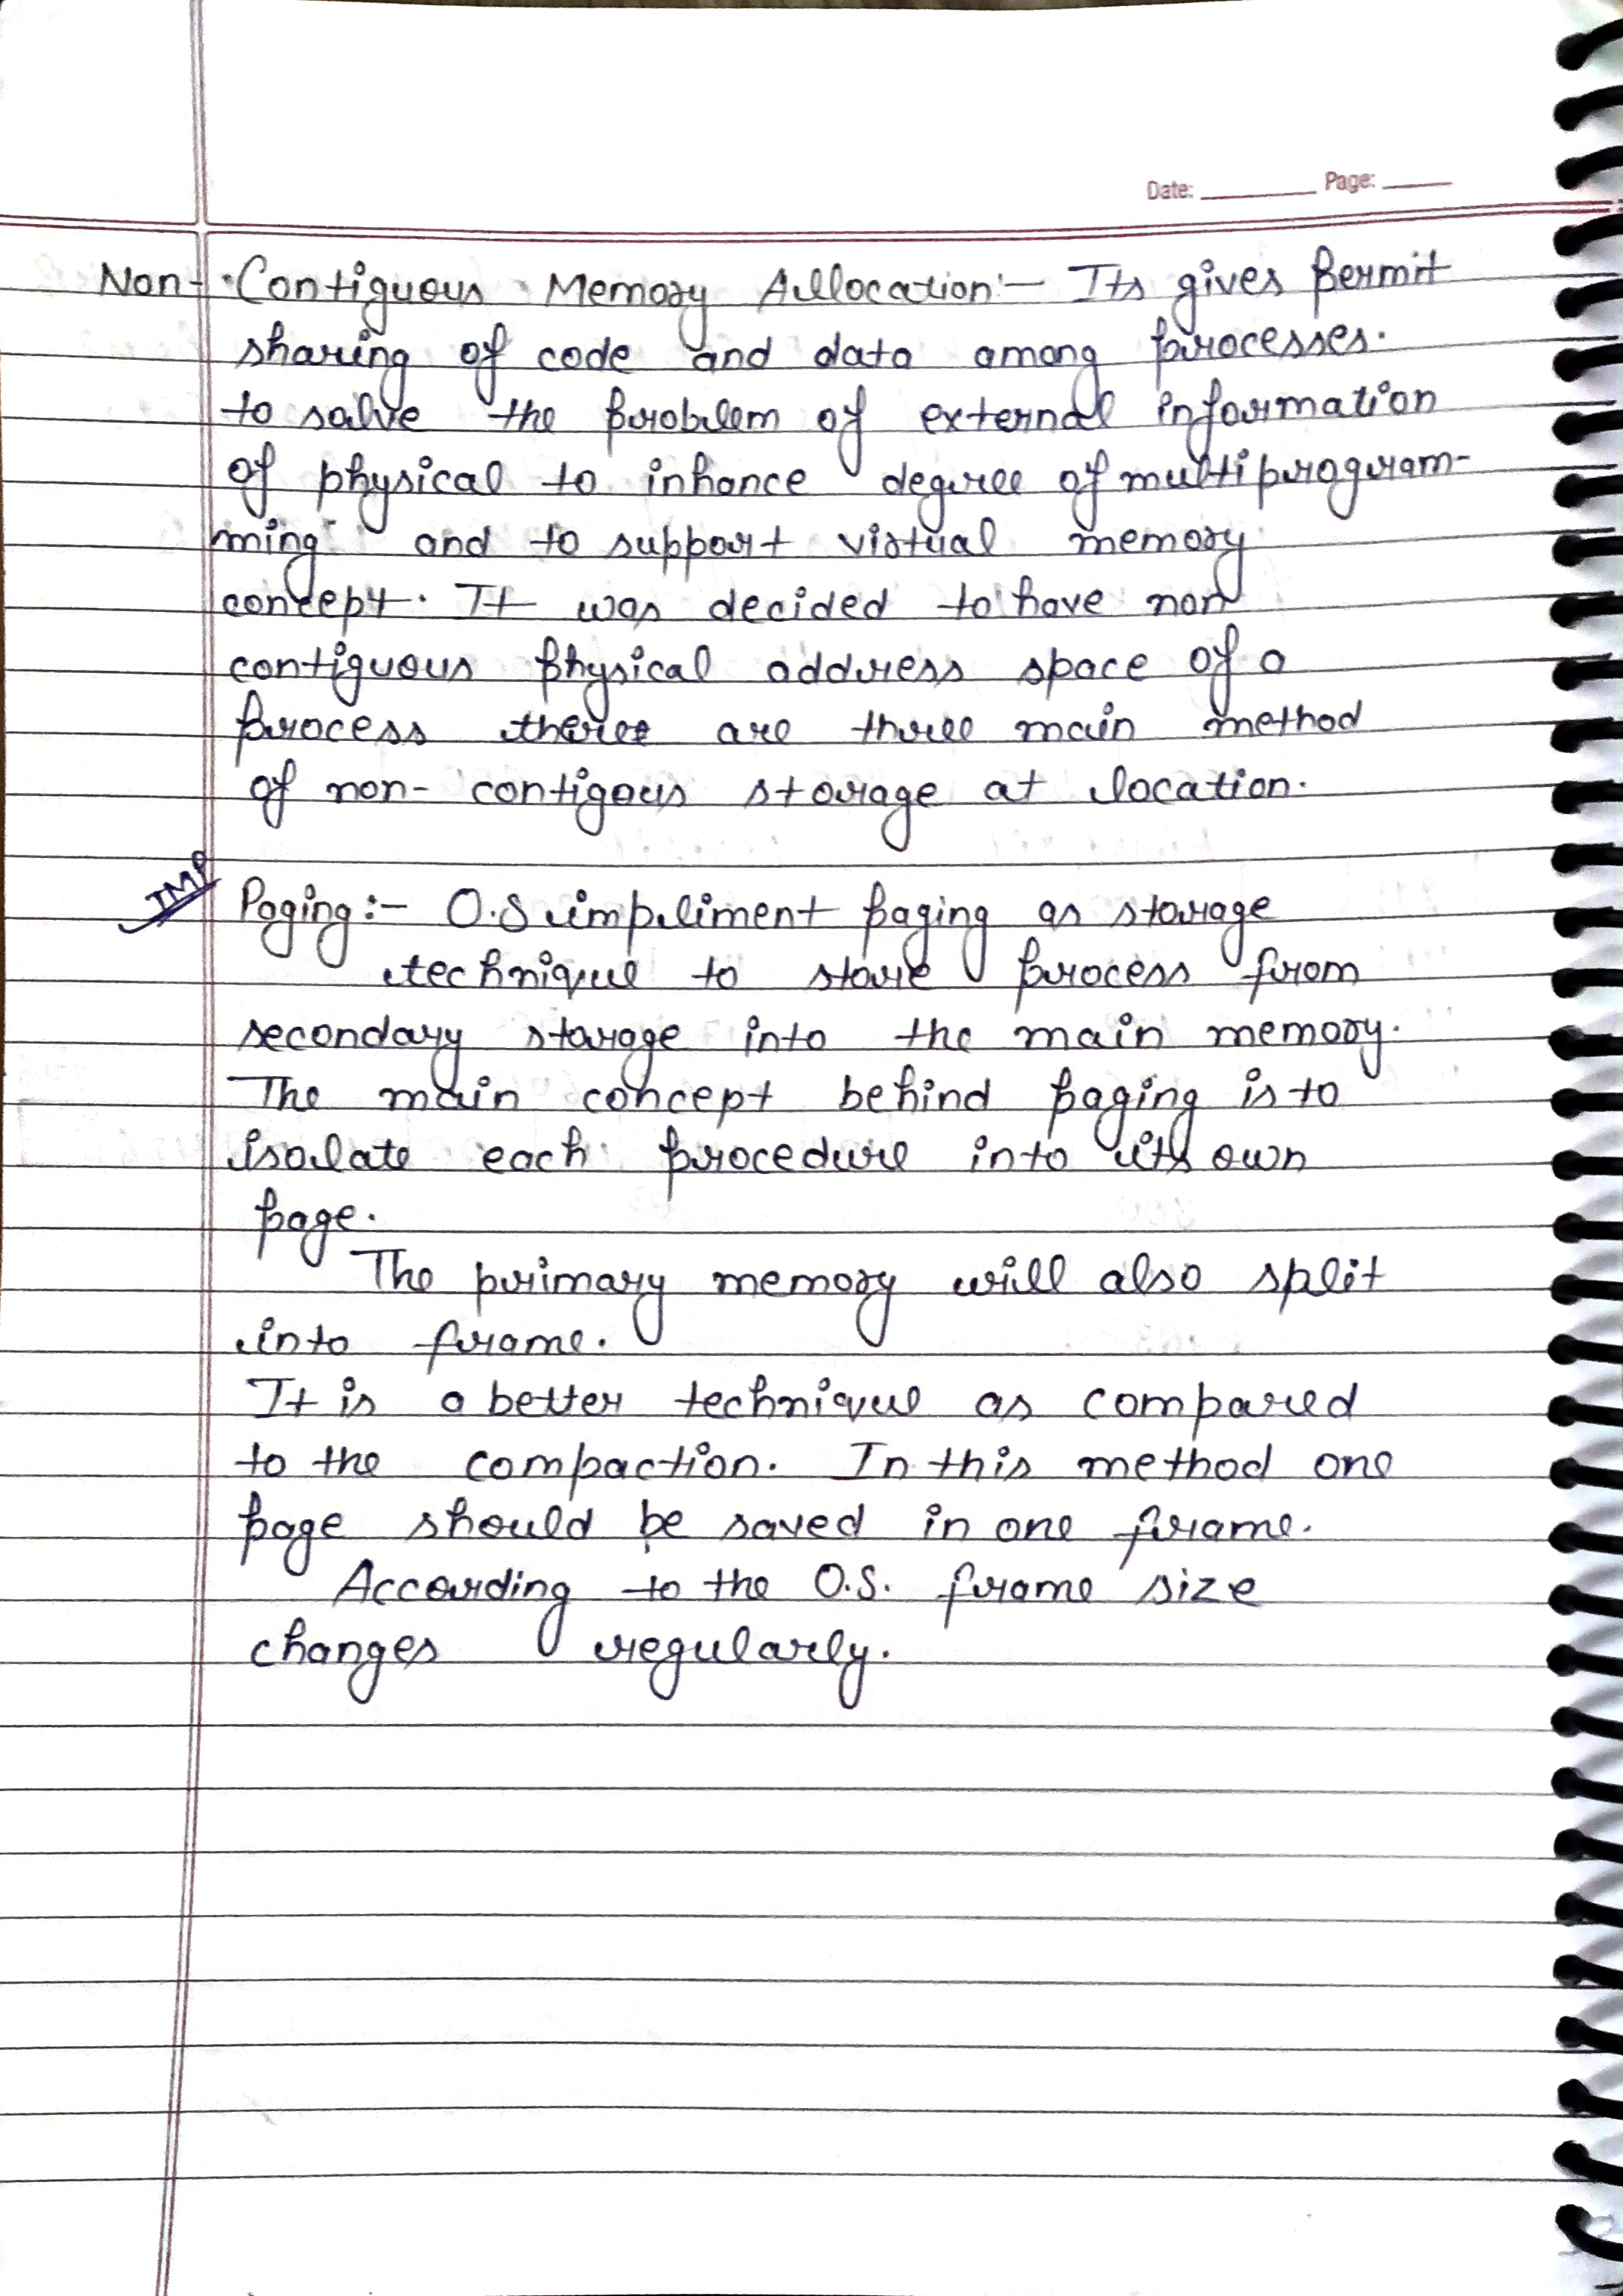 Date: Page:
Non-Contiguous Memory Allocation:- Its gives permit
sharing of code and data among processes.
to salve the problem of external information
of physical to inhance degree of multiprogram-
ming and to support virtual memory
concept. It was decided to have non
contiguous physical address space of a
process there are three main method
of non-contigous storage at location.
IMP
Paging:- O.S impliment paging as storage
technique to store process from
secondary storage into the main memory.
The main concept behind paging is to
isolate each procedure into its own
page.
The primary memory will also split
into frame.
It is a better technique as compared
to the compaction. In this method one
page should be saved in one frame.
According to the O.S. frame size
changes regularly.